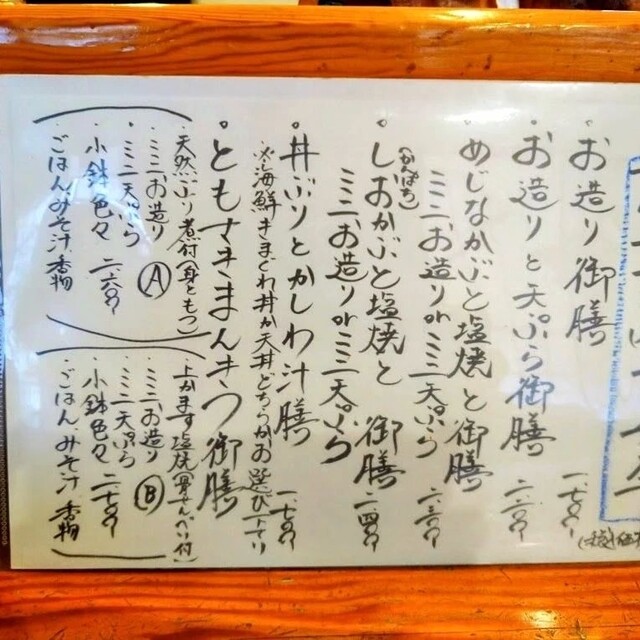 ・お造り御膳 一、七〇〇
・お造りと天ぷら御膳 二、二〇〇
・めじなかぶと塩焼と御膳 二、三〇〇
ミニお造りorミニ天ぷら
・しおかぶと塩焼と 御膳 二、四〇〇
(かんぱち)
ミニお造りorミニ天ぷら
・丼ぶりとかしわ汁膳 一、七〇〇
※海鮮きまぐれ丼か天丼どちらかお選び下さい
・ともすきまんきつ御膳
天然ぶり煮付(身ともつ)
・ミニお造り
・ミニ天ぷら Ⓐ
・小鉢色々 二、六〇〇
・ごはんみそ汁香物
上かます塩焼
・ミニお造り
・ミニ天ぷら Ⓑ
・小鉢色々 二、七〇〇
・ごはんみそ汁 香物